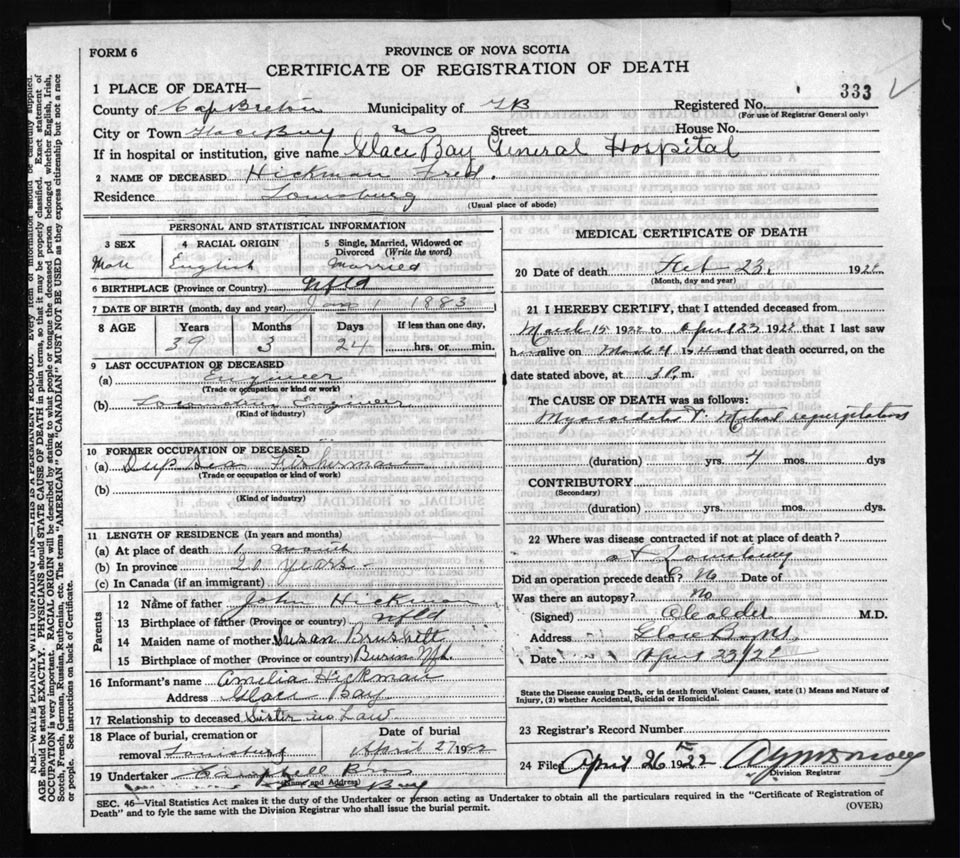 FORM 6
PROVINCE OF NOVA SCOTIA
CERTIFICATE OF REGISTRATION OF DEATH
1 PLACE OF DEATH—
County of Cap Breton Municipality of GB Registered No. 333
(For use of Registrar General only)
City or Town Glace Bay NS Street House No.
If in hospital or institution, give name Glace Bay General Hospital
2 NAME OF DECEASED Hickman Fred.
Residence Louisburg
(Usual place of abode)
PERSONAL AND STATISTICAL INFORMATION
3 SEX 4 RACIAL ORIGIN 5 Single, Married, Widowed or Divorced (Write the word)
Male English Married
6 BIRTHPLACE (Province or Country) Nfld
7 DATE OF BIRTH (month, day and year) Jan 1 1883
8 AGE Years Months Days If less than one day,
39 3 24 hrs. or min.
9 LAST OCCUPATION OF DECEASED
(a) Engineer
(Trade or occupation or kind or work)
(b) Engineer
(Kind of industry)
10 FORMER OCCUPATION OF DECEASED
(a) Deep Sea Fisherman
(Trade or occupation or kind of work)
(b)
(Kind of industry)
11 LENGTH OF RESIDENCE (In years and months)
(a) At place of death 1 month
(b) In province 20 years
(c) In Canada (if an immigrant)
Parents
12 Name of father John Hickman
13 Birthplace of father (Province or country) Nfld
14 Maiden name of mother Susan Brushett
15 Birthplace of mother (Province or country) Burin Nfl.
16 Informant's name Amelia Hickman
Address Glace Bay
17 Relationship to deceased Sister in Law
18 Place of burial, cremation or removal Louisburg
Date of burial
April 27 1922
19 Undertaker Campbell Bros
(Name and Address)
Bay
MEDICAL CERTIFICATE OF DEATH
20 Date of death Feb 23, 1922
(Month, day and year)
21 I HEREBY CERTIFY, that I attended deceased from
March 15 1922 to April 23 1922 that I last saw
h alive on and that death occurred, on the
date stated above, at 3 P. m.
The CAUSE OF DEATH was as follows:
Myocarditis & Mitral regurgitation
(duration) yrs. 4 mos. dys
CONTRIBUTORY
(Secondary)
(duration) yrs. mos. dys
22 Where was disease contracted if not at place of death?
at Louisburg
Did an operation precede death? No Date of
Was there an autopsy? No
(Signed) M.D.
Address Glace Bay NS.
Date April 23/22
State the Disease causing Death, or in death from Violent Causes, state (1) Means and Nature of
Injury, (2) whether Accidental, Suicidal or Homicidal.
23 Registrar's Record Number
24 Filed April 26th 1922
Division Registrar
SEC. 46—Vital Statistics Act makes it the duty of the Undertaker or person acting as Undertaker to obtain all the particulars required in the "Certificate of Registration of
Death" and to fyle the same with the Division Registrar who shall issue the burial permit. (OVER)
N.B.—WRITE PLAINLY WITH UNFADING INK—THIS IS A PERMANENT RECORD. Every item of information should be carefully supplied.
AGE should be stated EXACTLY. PHYSICIANS should STATE CAUSE OF DEATH in plain terms, so that it may be properly classified. Exact statement of
OCCUPATION is very important. RACIAL ORIGIN will be described by stating to what people or tongue the deceased person belonged whether English, Irish,
Scotch, French, German, Russian, Ruthenian, etc. The terms "AMERICAN" OR "CANADIAN" MUST NOT BE USED as they express citizenship but not a race
or people. See instructions on back of Certificate.